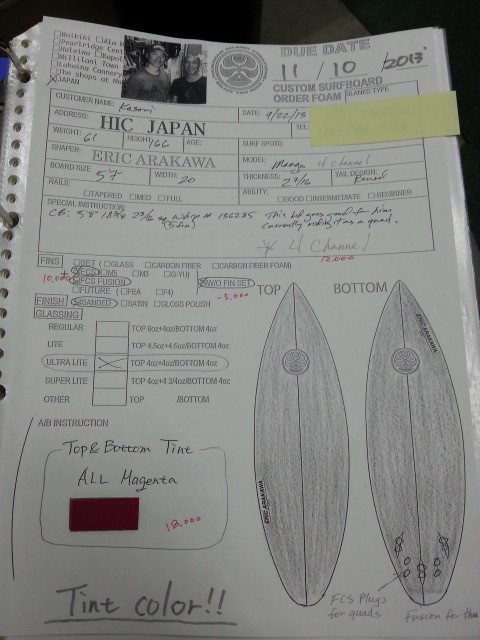 Waikiki
Pearlridge Cent
Haleiwa
Mililani Town
Lahaina Cannery
The shops at
JAPAN
DUE DATE
11 / 10 / 2013
CUSTOM SURFBOARD
ORDER FOAM
BLANKS TYPE
CUSTOMER NAME: Kasori
DATE: 9/22/13
ADDRESS: HIC JAPAN
TEL:
WEIGHT: 61 HEIGHT 166 AGE:
SURF SPOTS:
SHAPER: ERIC ARAKAWA
MODEL: Manga 4 channel
BOARD SIZE 5'7" WIDTH: 20
THICKNESS: 2 3/16 TAIL DESIGN: Round
RAILS: □TAPERED □MED □FULL
ABILITY: □GOOD □INTERMEDIATE □BEGINNER
SPECIAL INSTRUCTION
CB: 5'8" 18 7/8 2 3/16 sq whip # 156235 This bd goes good for him
(5 fin) currently riding it as a quad.
4 Channel
12.000
FINS □SET (□GLASS □CARBON FIBER □CARBON FIBER FOAM)
+ FCS □M5 □M3 □G-YU)
10.000 FCS FUSION W/O FIN SET
□FUTURE (□FEA □F4) -5,000
FINISH SANDED □SATIN □GLOSS POLISH
GLASSING
REGULAR TOP 6oz+4oz/BOTTOM 4oz
LITE TOP 4.5oz+4.5oz/BOTTOM 4oz
ULTRA LITE TOP 4oz+4oz/BOTTOM 4oz
SUPER LITE TOP 4oz+4 3/4oz/BOTTOM 4oz
OTHER TOP /BOTTOM
TOP BOTTOM
ERIC ARAKAWA
ERIC ARAKAWA
A/B INSTRUCTION
Top & Bottom Tint
ALL Magenta
18.000
Tint color!!
FCS Plugs
for quads
Fusion for